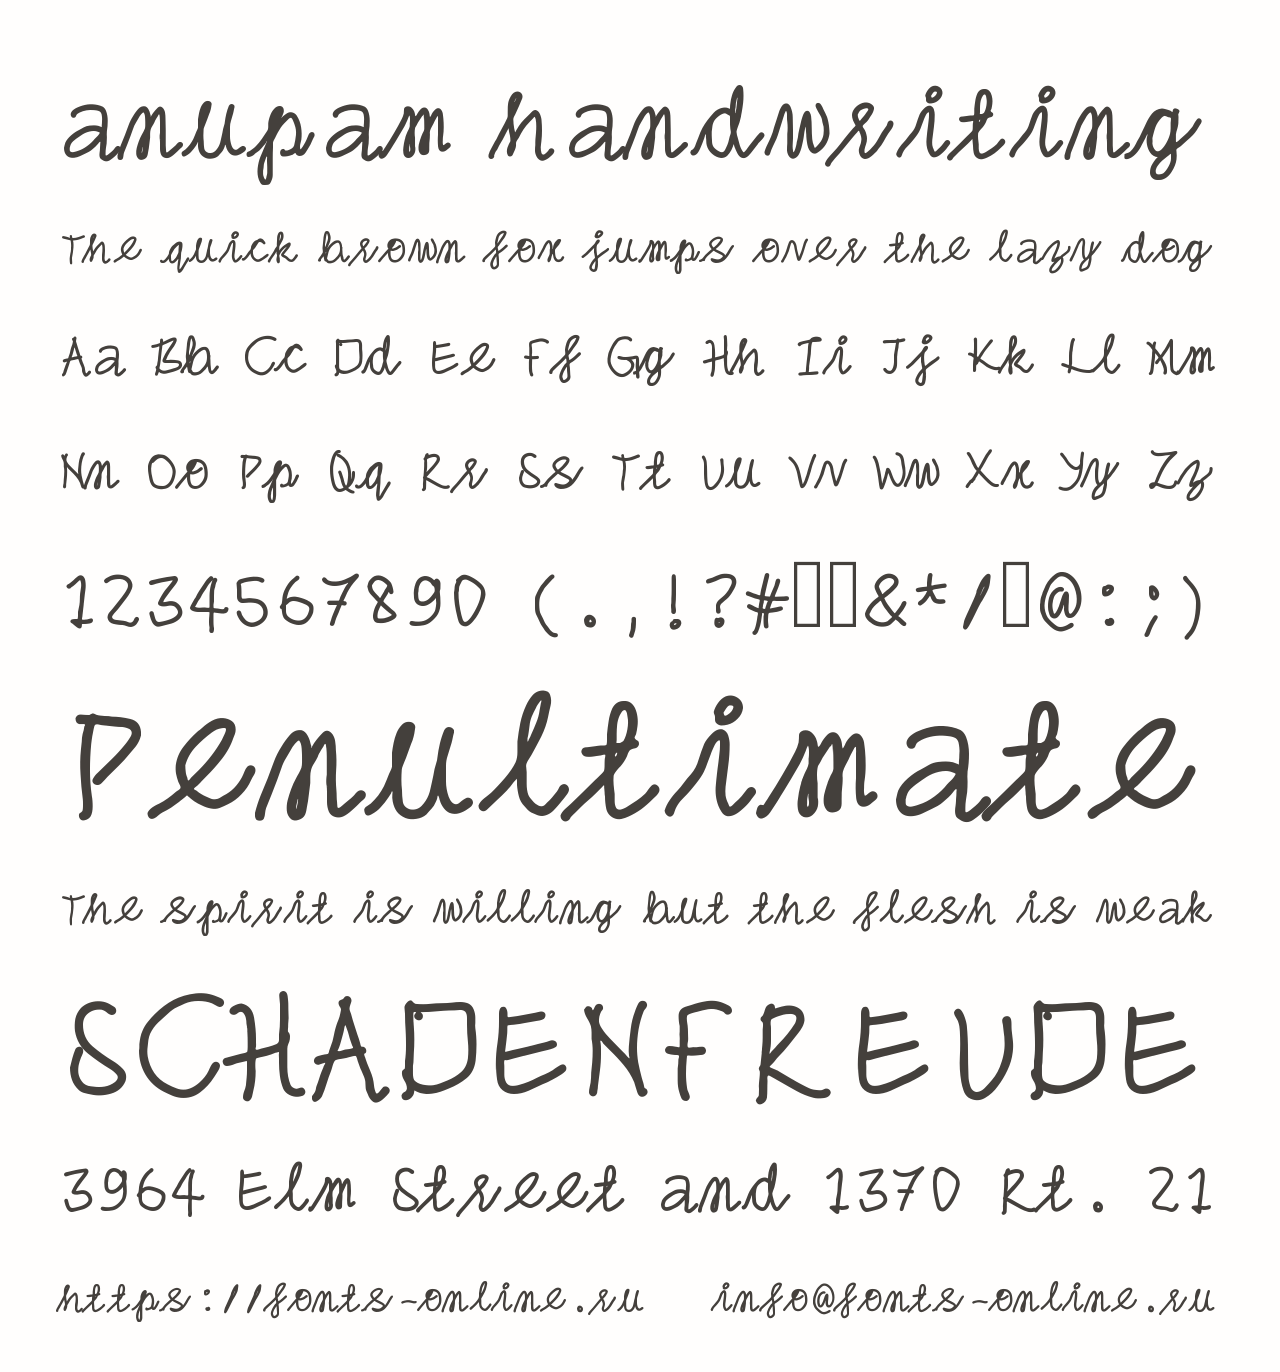 anupam handwriting
The quick brown fox jumps over the lazy dog
Aa Bb Cc Dd Ee Ff Gg Hh Ii Jj Kk Ll Mm
Nn Oo Pp Qq Rr Ss Tt Uu Vv Ww Xx Yy Zz
1234567890 (.,!?#▯▯&*/▯@:;)
Penultimate
The spirit is willing but the flesh is weak
SCHADENFREUDE
3964 Elm Street and 1370 Rt. 21
https://fonts-online.ru info@fonts-online.ru